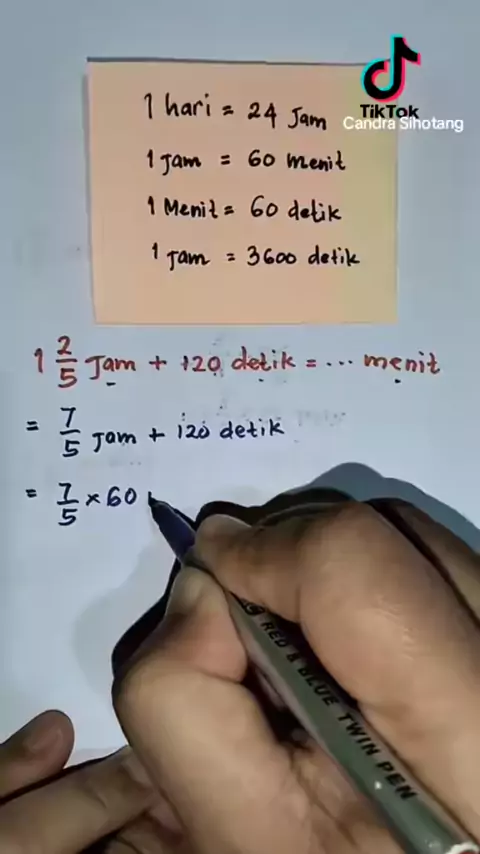 TikTok
Candra Sihotang
1 hari = 24 Jam
1 Jam = 60 menit
1 Menit = 60 detik
1 Jam = 3600 detik
1 2/5 Jam + 120 detik = ... menit
= 7/5 Jam + 120 detik
= 7/5 × 60
RED & BLUE TWIN PEN